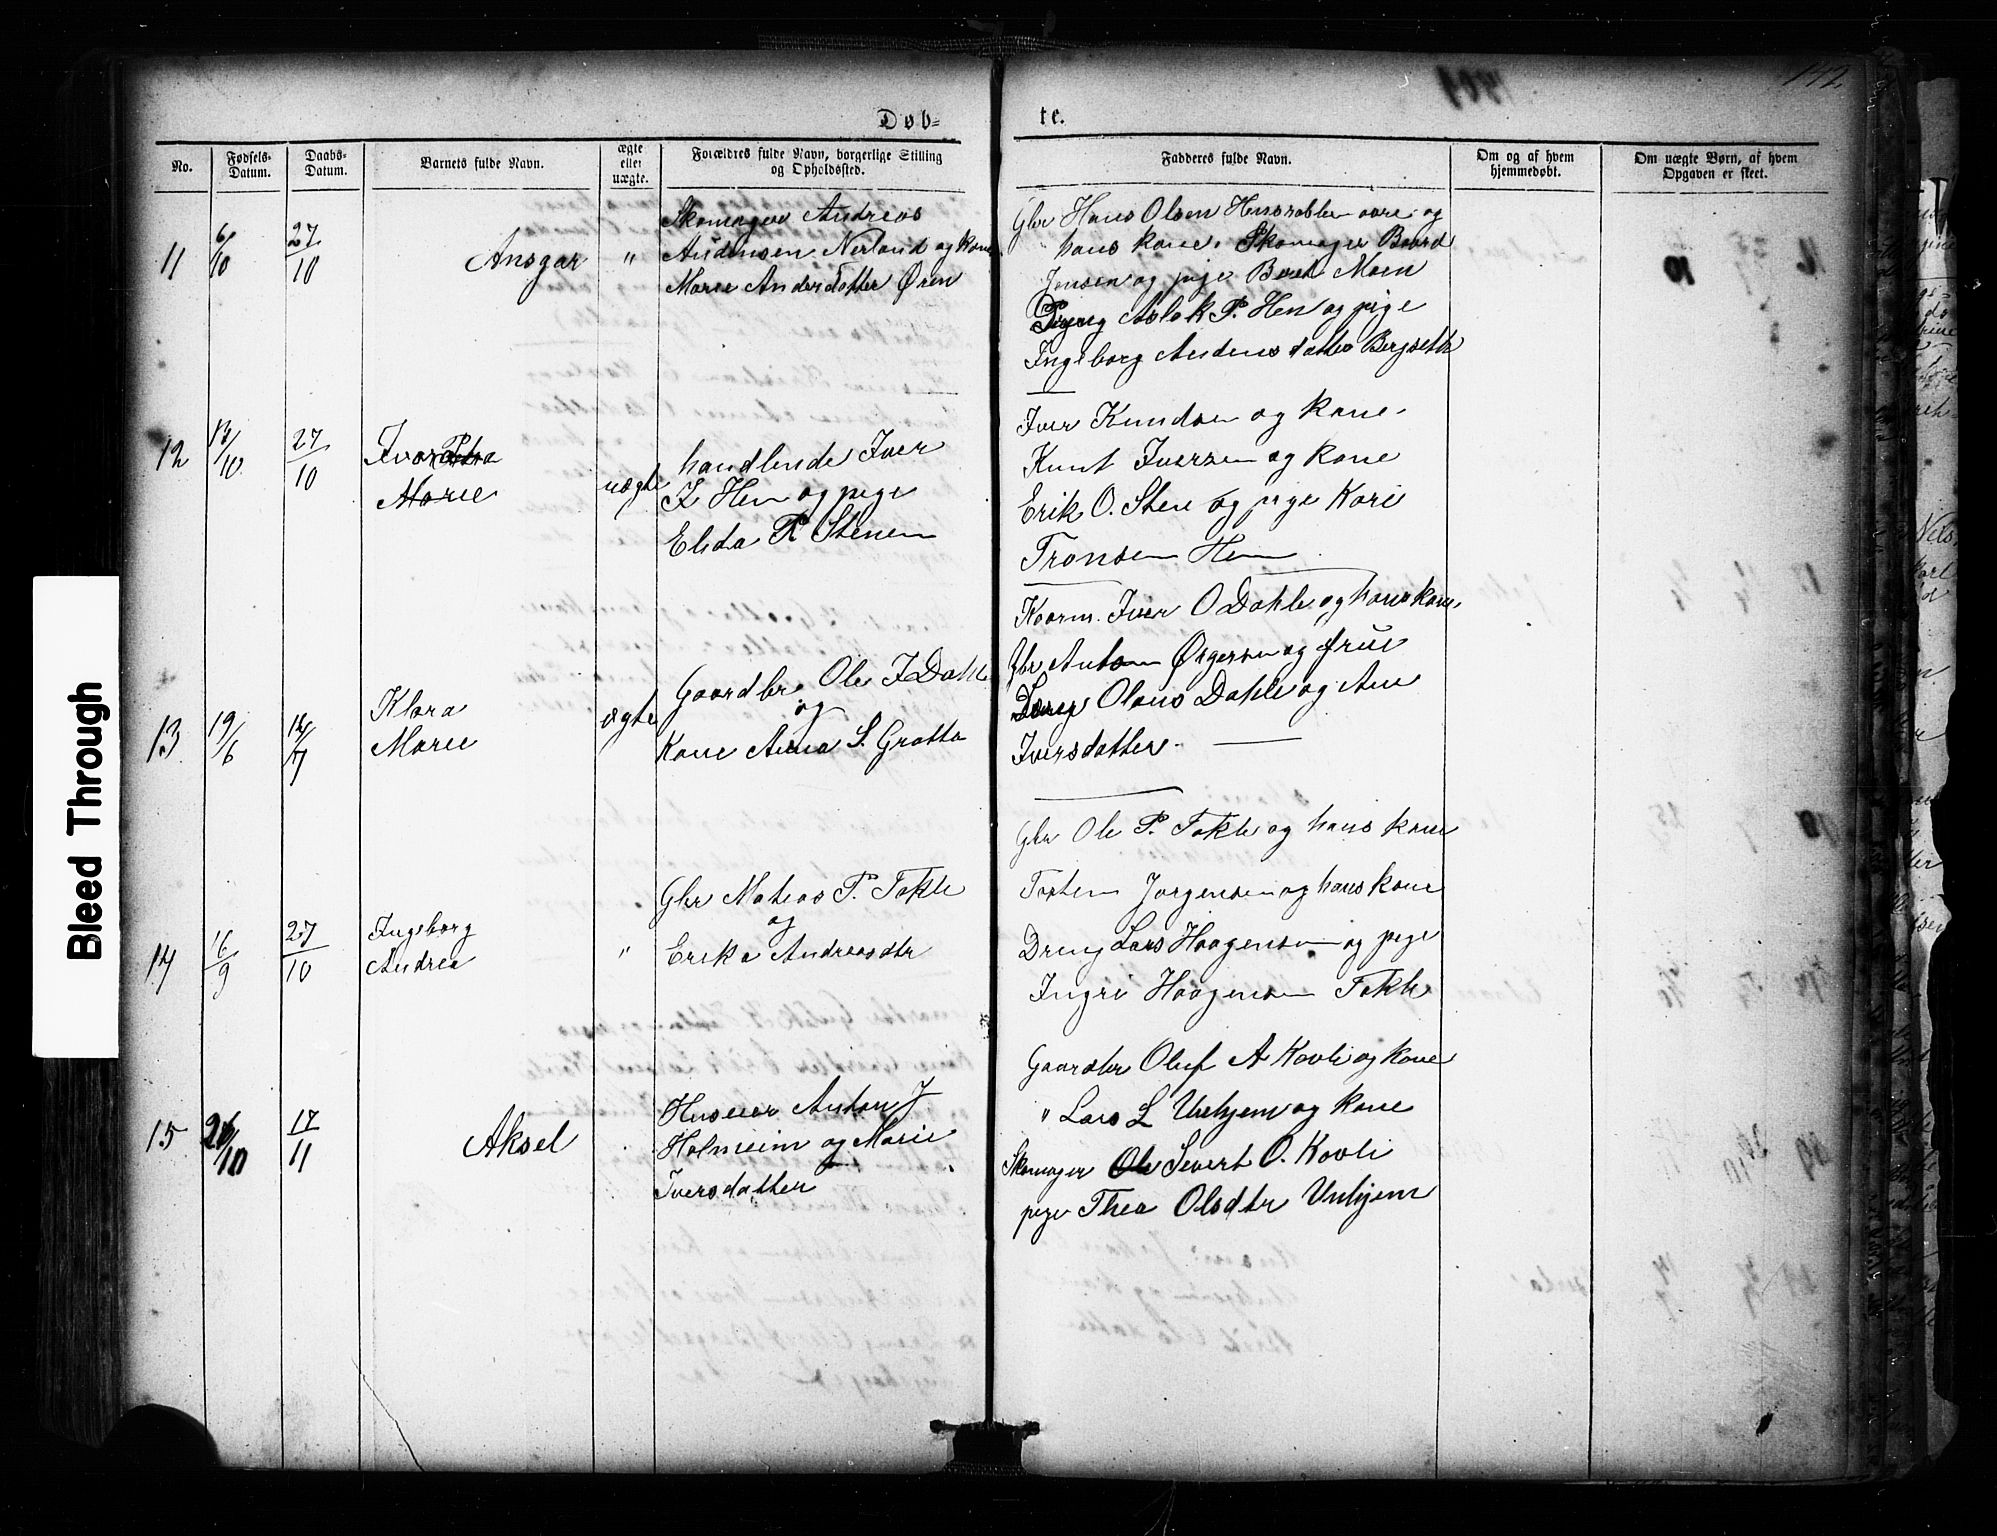 142
1901
Døb-
te.
No.
Fødsels-
Datum.
Daabs-
Datum.
Barnets fulde Navn.
ægte
eller
uægte.
Forældres fulde Navn, borgerlige Stilling
og Opholdssted.
Fadderes fulde Navn.
Om og af hvem
hjemmedøbt.
Om uægte Børn, af hvem
Opgaven er skeet.
11
6/10
27/10
Ansgar
"
Skomager Andreas
Andersen Nerland og Kone
Marie Andersdatter Øren
Gbr Hans Olsen Hensroblen og
hans kone. Skomager Baard
Jonsen og pige Beret Moen
Aslak P. Hen og pige
Ingeborg Andersdatter Bergseth
12
13/10
27/10
Ivar
Marie
uægte
handlende Iver
I Hen og pige
Elida P. Stenen
Iver Knudsen og kone.
Knut Iversen og kone
Erik O. Stene og pige Kari
Tronsen Hen
13
19/6
14/7
Klara
Marie
ægte
Gaardbr. Ole I Dahle
og
Kone Anna S. Grotta
Kaarm. Iver O Dahle og hans kone.
Gbr Anton Ørgersen og frue
Olaus Dahle og Ane
Iversdatter.
14
16/9
27/10
Ingeborg
Andrea
"
Gbr Matias P. Tokle
og
Erika Andreasdtr
Gbr Ole P. Tokle og hans kone
Torsten Jørgensen og hans kone
Dreng Lars Haagensen og pige
Ingri Haagensen Tokle
15
26/10
17/11
Aksel
Huseier Anton J
Holmeim og Marie
Iversdatter
Gaardbr Oluf A Kavli og kone
" Lars L Unhjem og kone
Skomager Ole Sivert O. Kavli
pige Thea Olsdtr Unhjem
Bleed Through